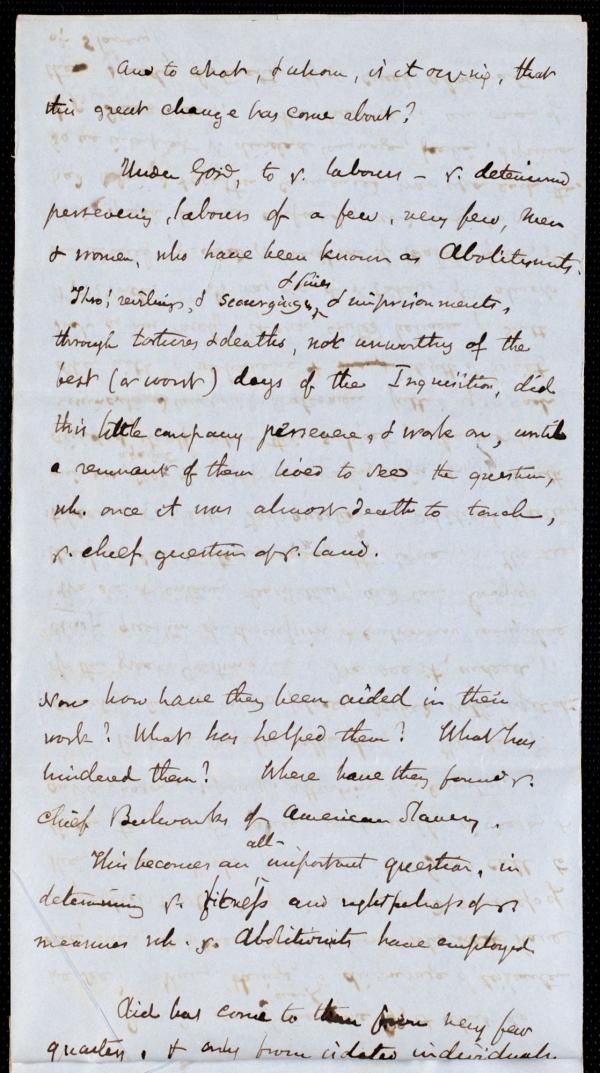 And to what, & whom, is it owing, that
this great change has come about?
Under God, to ye. labours – ye. determined
persevering, labours of a few, very few, men
& women, who have been known as Abolitionists.
& fines
Thro' revilings, & scourgings, & imprisonments,
through tortures & deaths, not unworthy of the
best (or worst) days of the Inquisition, did
this little company persevere, & work on, until
a remnant of them lived to see the question,
wh. once it was almost death to touch,
ye. chief question of ye. land.
Now how have they been aided in their
work? What has helped them? What has
hindered them? Where have they found ye.
chief Bulwarks of American Slavery.
all-
This becomes an important question, in
determining ye. fitness and rightfulness of ye.
measures wh. ye. Abolitionists have employed
Aid has come to them from very few
quarters, & only from isolated individuals